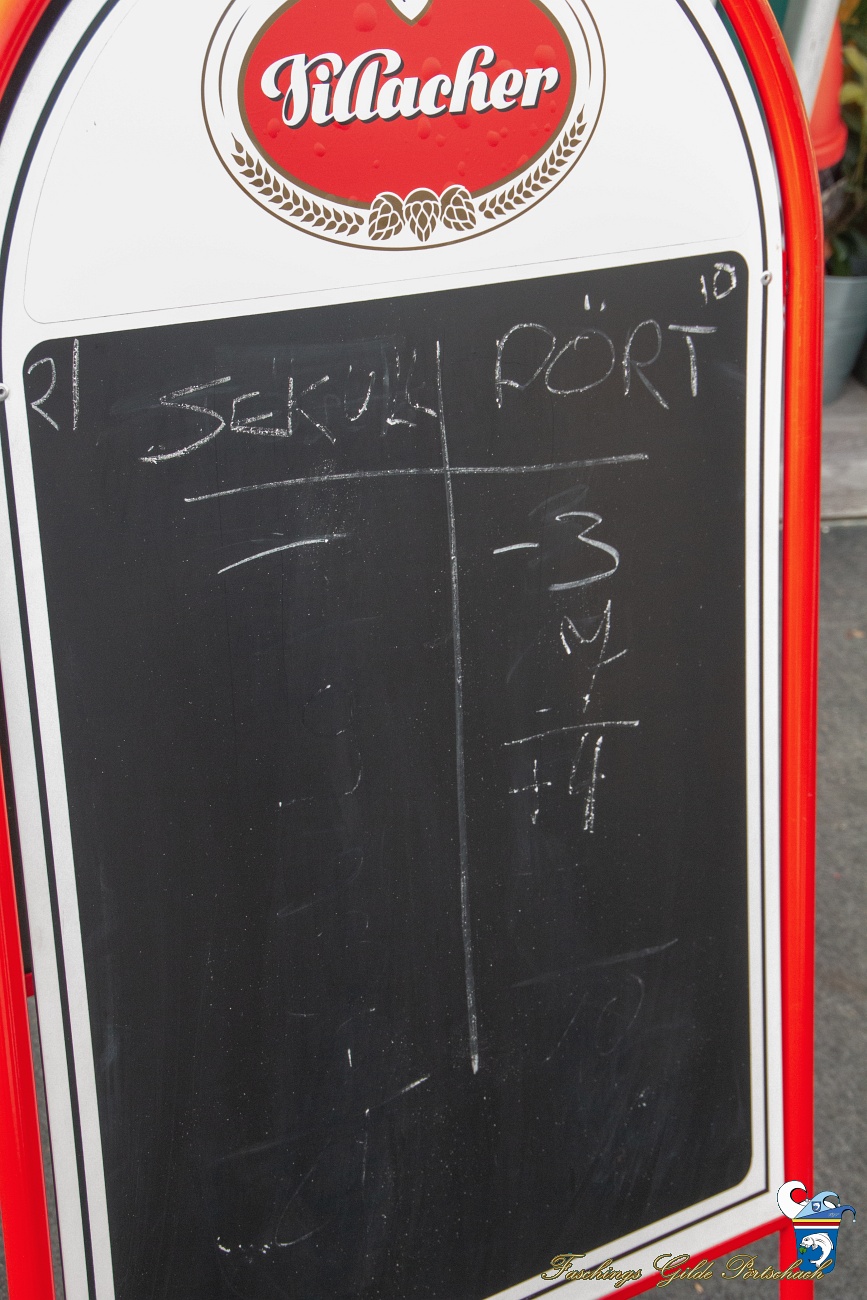 Villacher
21 10
SEKÜLL PÖRT
- -3
7
+4
Faschings Gilde Pörtschach